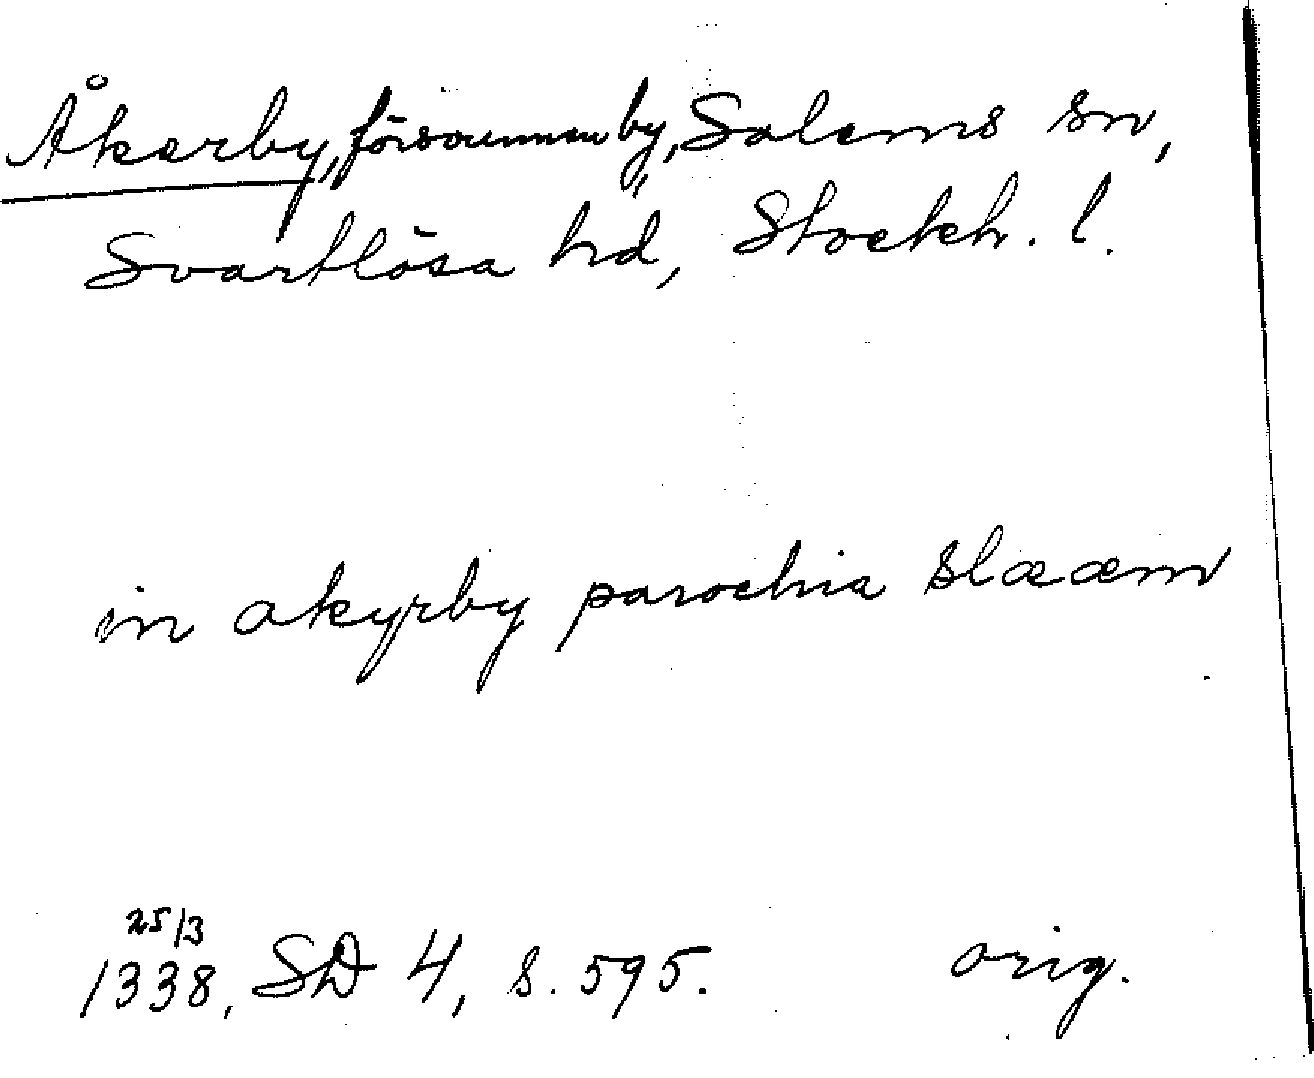 Åkerby, „försvunnen by„, Salems sn,
Svartlösa hd, Stockh. l.
in akyrby parochia slææm
25/3
1338, SD 4, s. 595. orig.